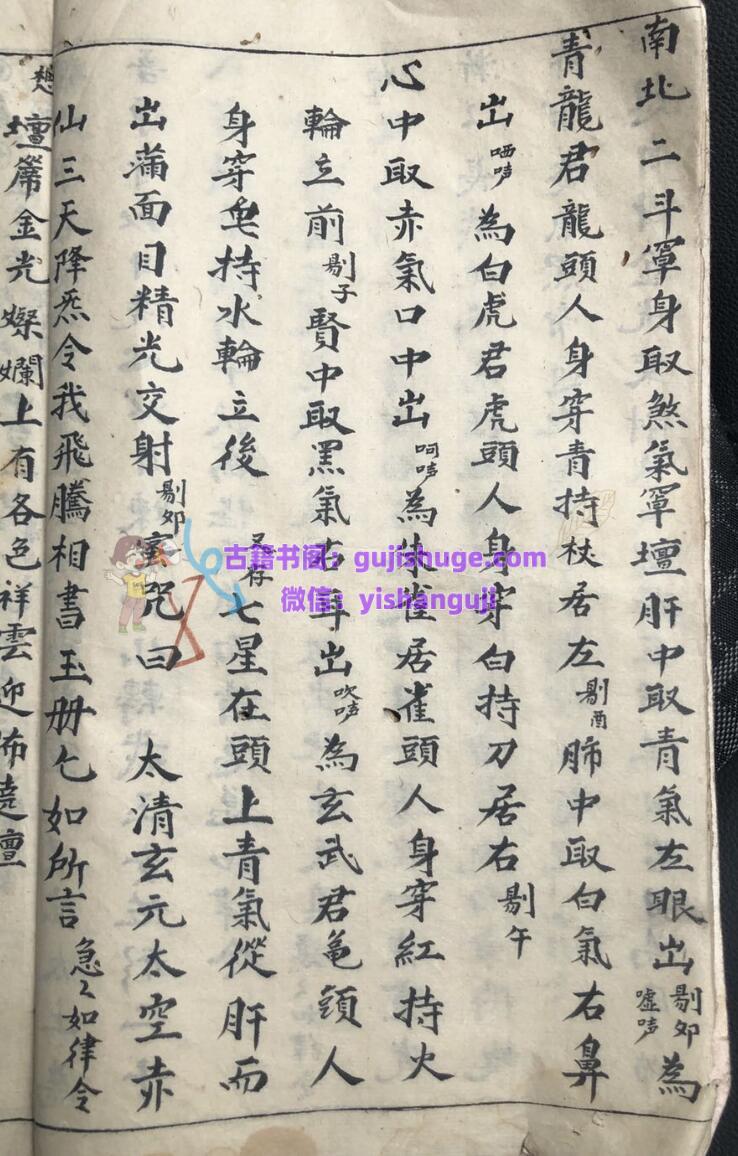 南北二斗罩身取煞氣罩壇肝中取青氣左眼出剔夘噓声為
青龍君龍頭人身穿青持杖居左剔酉肺中取白氣右鼻
出哂声為白虎君虎頭人身穿白持刀居右剔午
心中取赤氣口中出呵声為朱雀居雀頭人身穿紅持火
輪立前剔子腎中取黑氣右耳出吹声為玄武君亀頭人
身穿皂持水輪立後又存七星在頭上青氣從肝而
出滿面目精光交射剔夘蜜咒曰太清玄元太空赤
仙三天降炁令我飛騰相書玉册乞如所言急〻如律令
想壇篆金光燦爛上有各色祥雲迎佈遶壇
古籍书阁：gujishuge.com
微信：yishanguji